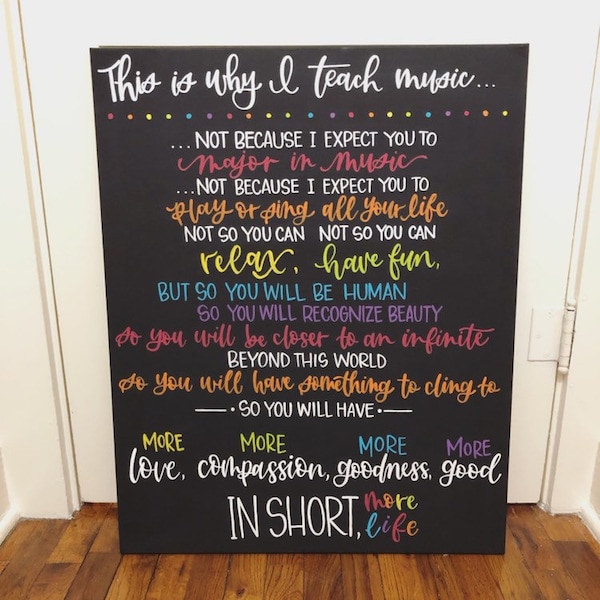 This is why I teach music...
...NOT BECAUSE I EXPECT YOU TO
major in music
...NOT BECAUSE I EXPECT YOU TO
play or sing all your life
NOT SO YOU CAN NOT SO YOU CAN
relax, have fun,
BUT SO YOU WILL BE HUMAN
SO YOU WILL RECOGNIZE BEAUTY
so you will be closer to an infinite
BEYOND THIS WORLD
so you will have something to cling to
SO YOU WILL HAVE
MORE MORE MORE MORE
love, compassion, goodness, good
IN SHORT, more
life